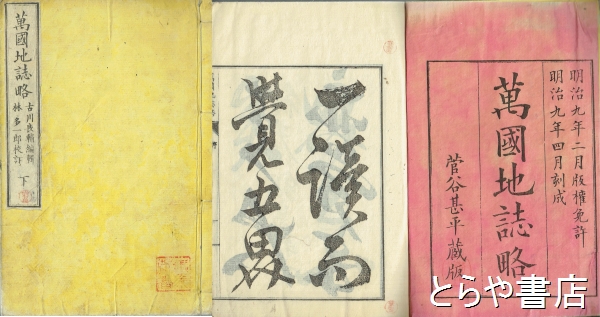 萬國地誌略
古川良輔編輯
林多一郎校訂
下
一讀而
覺五畧
明治九年二月版權免許
明治九年四月刻成
萬國地誌略
菅谷甚平藏版
とらや書店